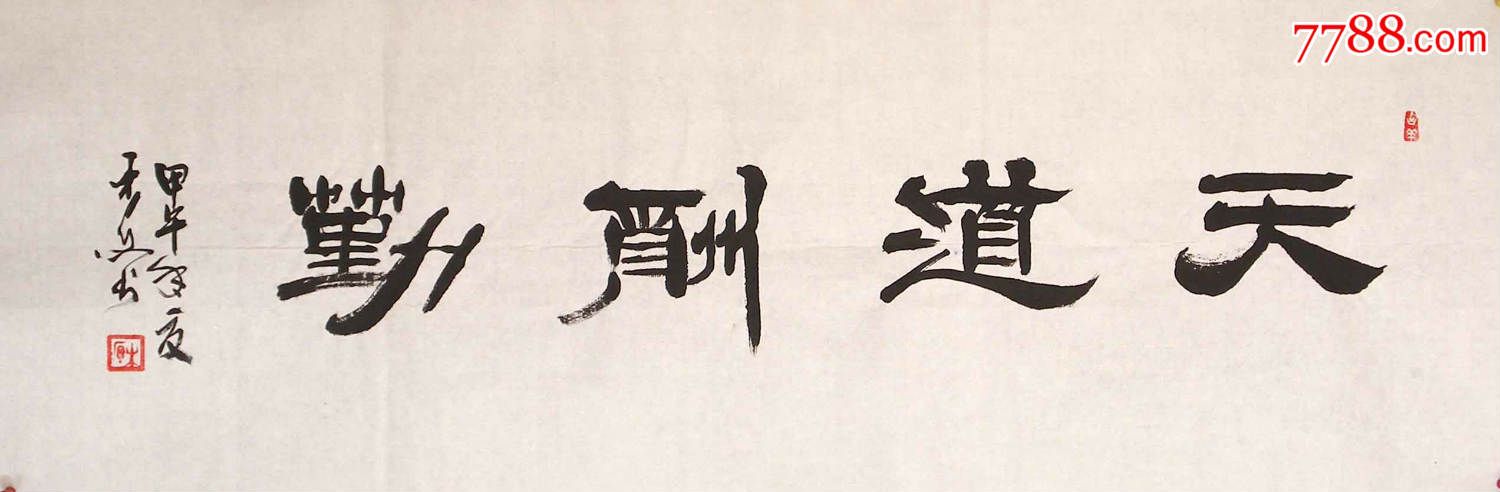 7788.com
天道酬勤
甲午年夏